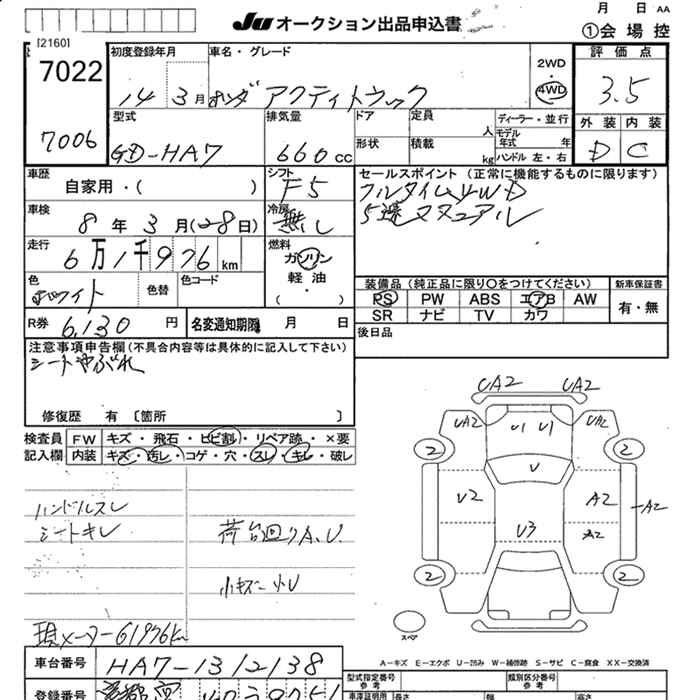 月 日 AA
JU オークション出品申込書
①会場控
[2160]
7022
7006
初度登録年月
14 3月
車名・グレード
ホンダ アクティトラック
2WD
4WD
評価点
3.5
外装 内装
D C
型式
GD-HA7
排気量
660cc
ドア
形状
定員
人
積載
kg
ディーラー・並行
モデル年式 年
ハンドル 左・右
車歴
自家用・( )
シフト
F5
セールスポイント (正常に機能するものに限ります)
フルタイム4WD
5速マニュアル
車検
8年3月(28日)
冷房
無し
走行
6万1千976km
燃料
ガソリン
軽油
・
( )
色
ホワイト
色替
色コード
装備品 (純正品に限り○をつけてください)
PS PW ABS エアB AW
SR ナビ TV カワ
新車保証書
有・無
R券
6,130円
名変通知期限 月 日
後日品
注意事項申告欄(不具合内容等は具体的に記入して下さい)
シートやぶれ
修復歴 有 〔箇所 〕
検査員記入欄
FW キズ・飛石・ヒビ割・リペア跡・×要
内装 キズ・汚し・コゲ・穴・スレ・キレ・破レ
ハンドルスレ
シートキレ
荷台回りA.U
小キズ 小U
現メーター61976km
UA2 UA2
UA2 U1 U1 UA2
2 2
U
U2 A2 A2
U3 A2
2 2
スペア
A-キズ E-エクボ U-凹み W-補修跡 S-サビ C-腐食 XX-交換済
車台番号
HA7-1312138
型式指定番号
参考
類別区分番号
参考
登録番号
車庫証明用 長さ 幅 高さ